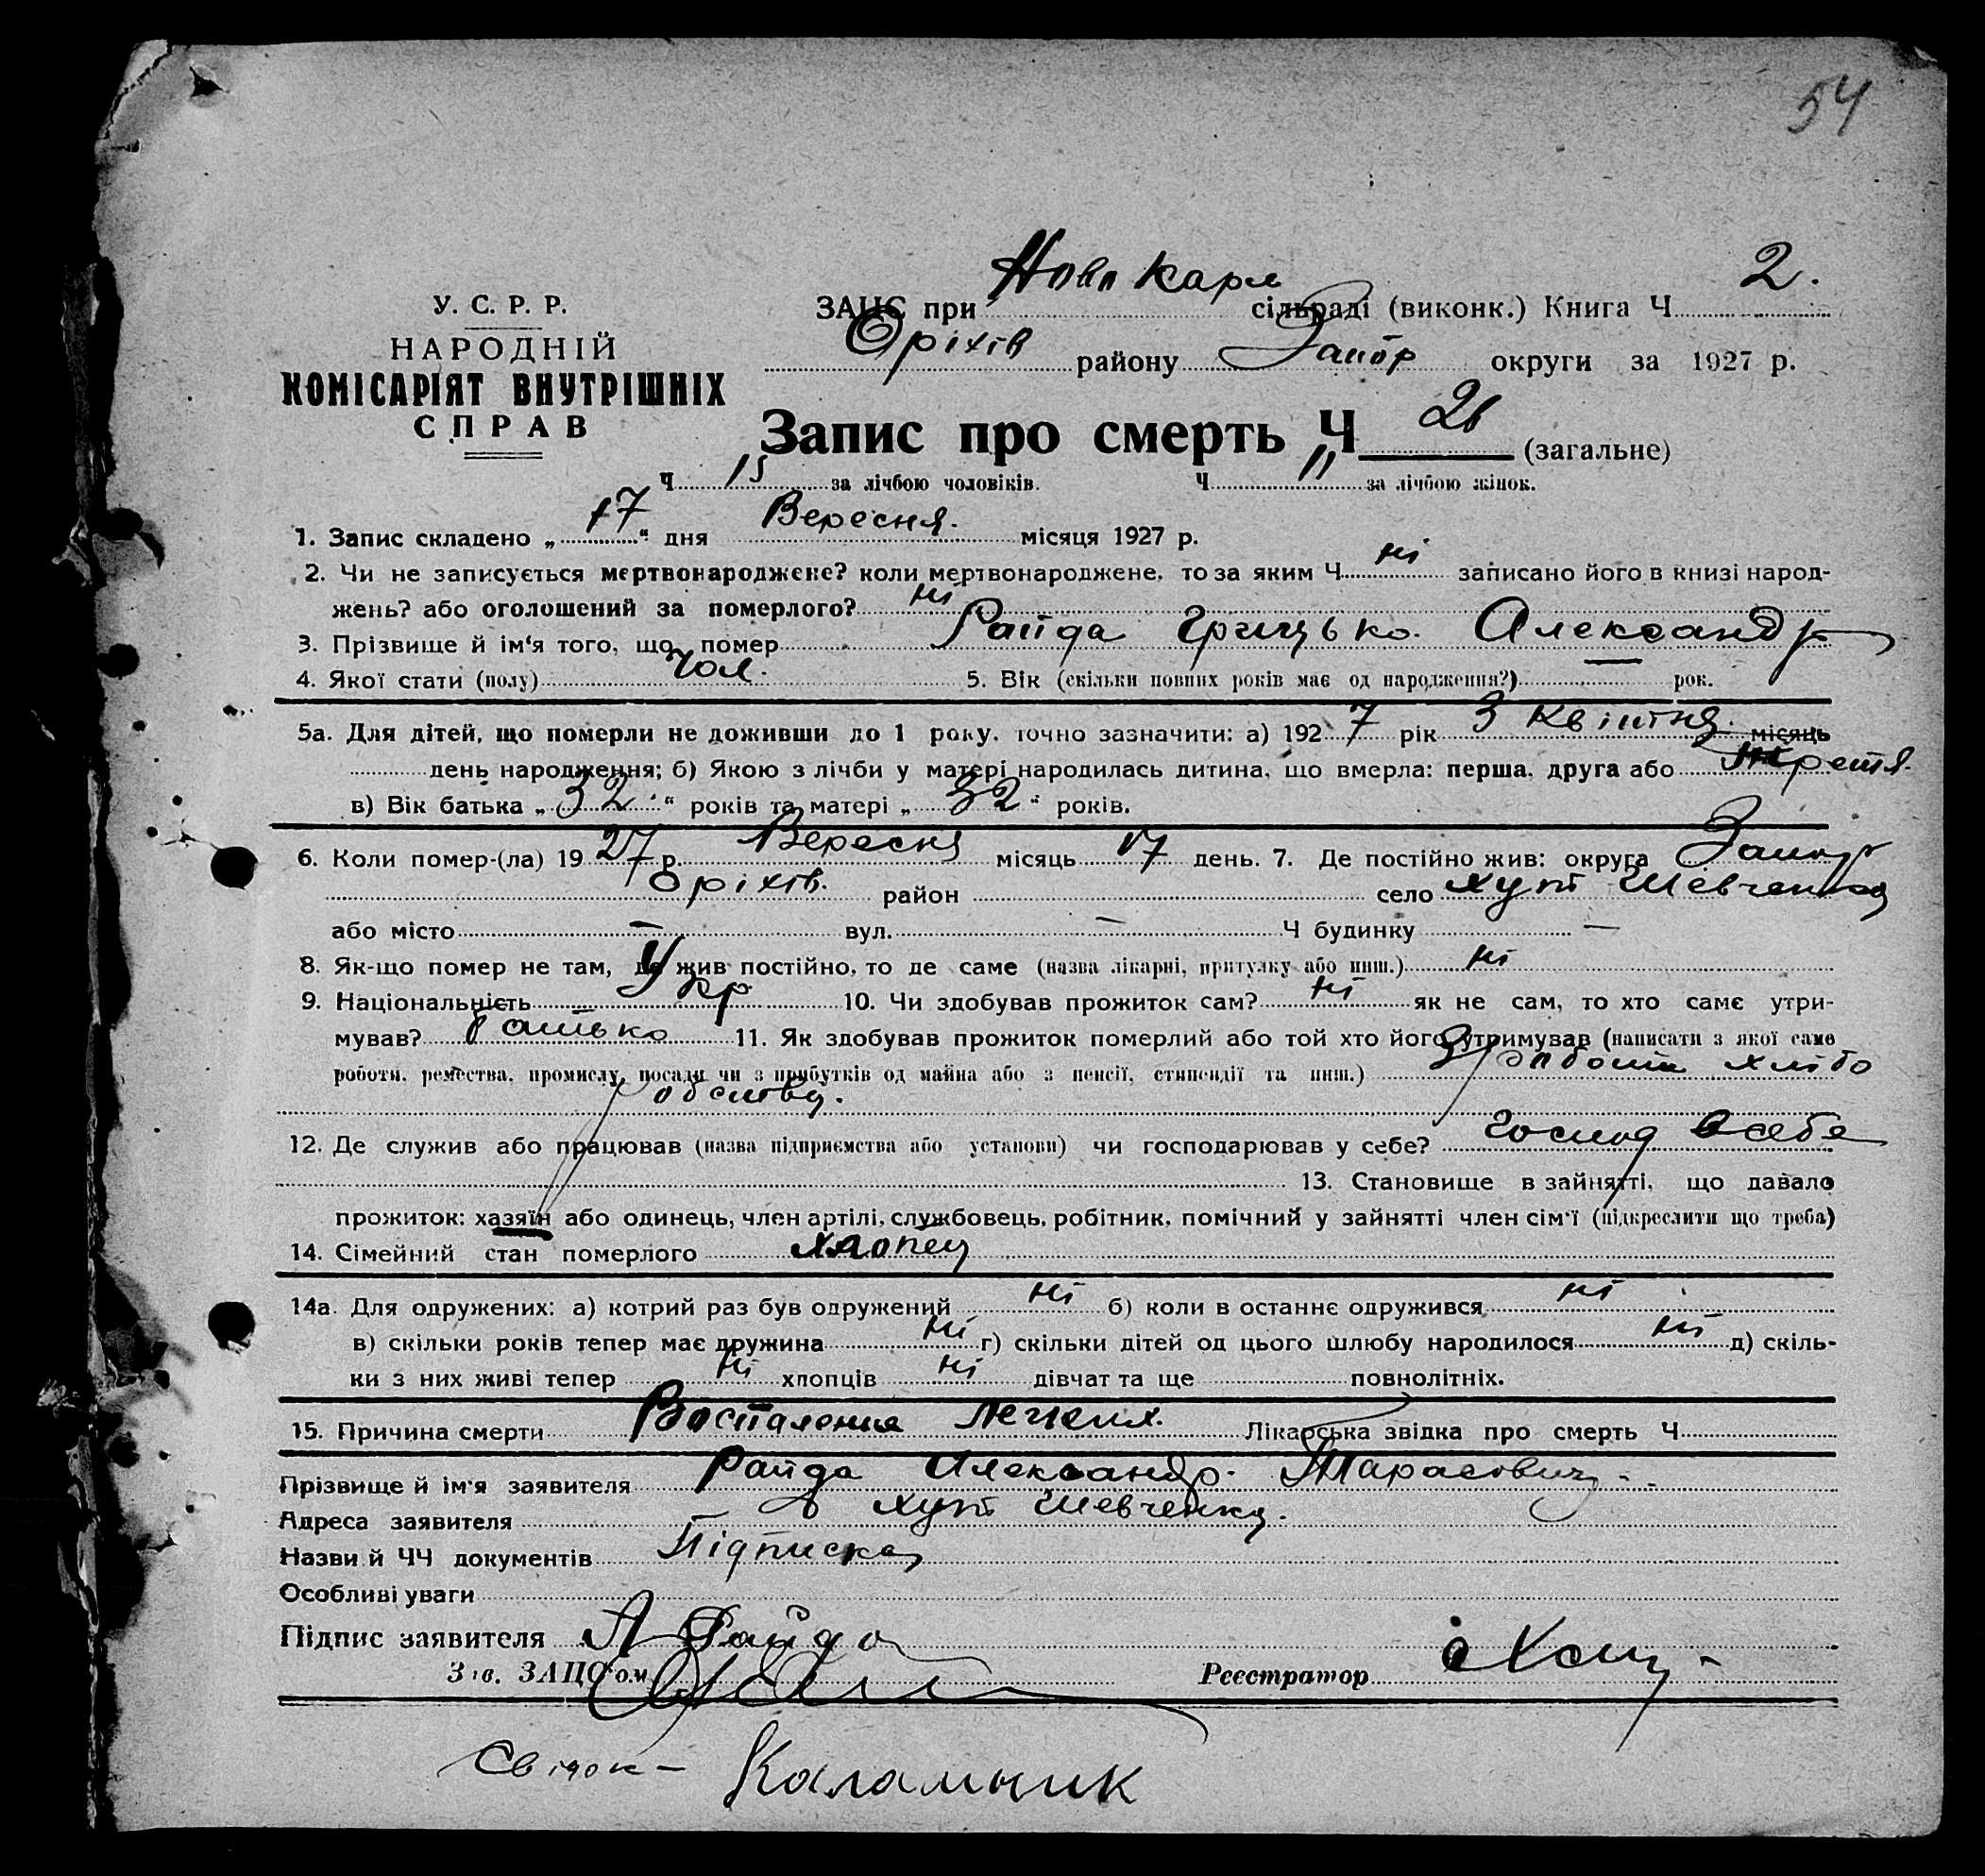 54
Ново Карл 2.
У. С. Р. Р. ЗАЦС при сільраді (виконк.) Книга Ч
НАРОДНІЙ Оріхів району Запор округи за 1927 р.
КОМІСАРІЯТ ВНУТРІШНІХ
СПРАВ Запис про смерть Ч 26 (загальне)
Ч 15 за лічбою чоловіків. Ч 11 за лічбою жінок.
1. Запис складено „ 17 “ дня Вересня. місяця 1927 р.
2. Чи не записується мертвонароджене? коли мертвонароджене, то за яким Ч ні записано його в книзі народ-
жень? або оголошений за померлого? ні
3. Прізвище й ім‘я того, що помер Райда Грицько. Александр
4. Якої стати (полу) Чол. 5. Вік (скільки повних років має од народження?) — рок.
5а. Для дітей, що померли не доживши до 1 року, точно зазначити: а) 192 7 рік 3 Квітня. місяць
день народження; б) Якою з лічби у матері народилась дитина, що вмерла: перша, друга або третя.
в) Вік батька „ 32 “ років та матері „ 32 “ років.
6. Коли помер-(ла) 19 27 р. Вересня місяць 17 день. 7. Де постійно жив: округа Запор
Оріхів. район село хут Шевченка
або місто — вул. — Ч будинку —
8. Як-що помер не там, де жив постійно, то де саме (назва лікарні, притулку або инш.) ні
9. Національність Укр 10. Чи здобував прожиток сам? ні як не сам, то хто саме утри-
мував? батько 11. Як здобував прожиток померлий або той хто його утримував (написати з якої саме
роботи, ремества, промислу, посади чи з прибутків од майна або з пенсії, стипендії та инш.) З роботи хлібо
робства.
12. Де служив або працював (назва підприємства або установи) чи господарював у себе? Господ в себе
13. Становище в зайнятті, що давало
прожиток: хазяїн або одинець, член артілі, службовець, робітник, помічний у зайнятті член сім‘ї (підкреслити що треба)
14. Сімейний стан померлого хлопец
14а. Для одружених: а) котрий раз був одружений ні б) коли в останнє одружився ні
в) скільки років тепер має дружина ні г) скільки дітей од цього шлюбу народилося ні д) скіль-
ки з них живі тепер ні хлопців ні дівчат та ще повнолітніх.
15. Причина смерти Воспаления легких. Лікарська звідка про смерть Ч
Прізвище й ім'я заявителя Райда Александр. Тарасович.
Адреса заявителя хут Шевченка.
Назви й ЧЧ документів Підписка
Особливі уваги
Підпис заявителя А Райда
Зав. ЗАЦС‘ом Реєстратор
Свідок — Каламник